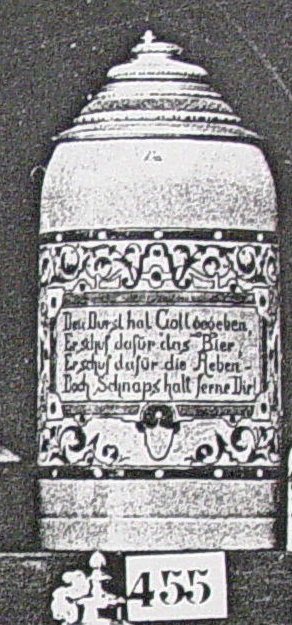 Den Durst hat Gott gegeben,
Er schuf dafür das Bier,
Er schuf dafür die Reben –
Doch Schnaps halt ferne Dir!
455